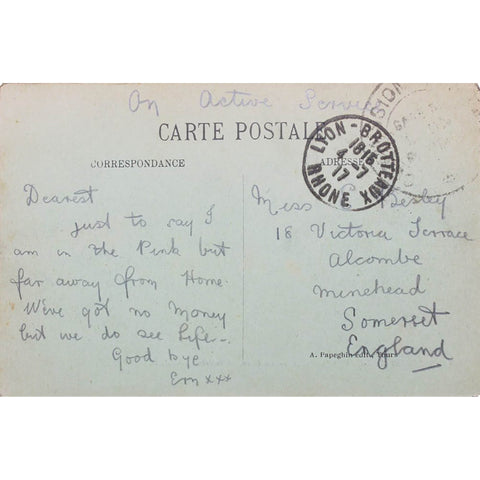 On Active Service
CARTE POSTALE
CORRESPONDANCE
ADRESSE
LYON-BROTTEAUX
1815
4-7
17
RHONE
Dearest
just to say I
am in the Pink but
far away from Home.
We've got no money
but we do see Life -
Good bye
Ern xxx
Miss Besley
18 Victoria Terrace
Alcombe
Minehead
Somerset
England
A. Papeghin édit.